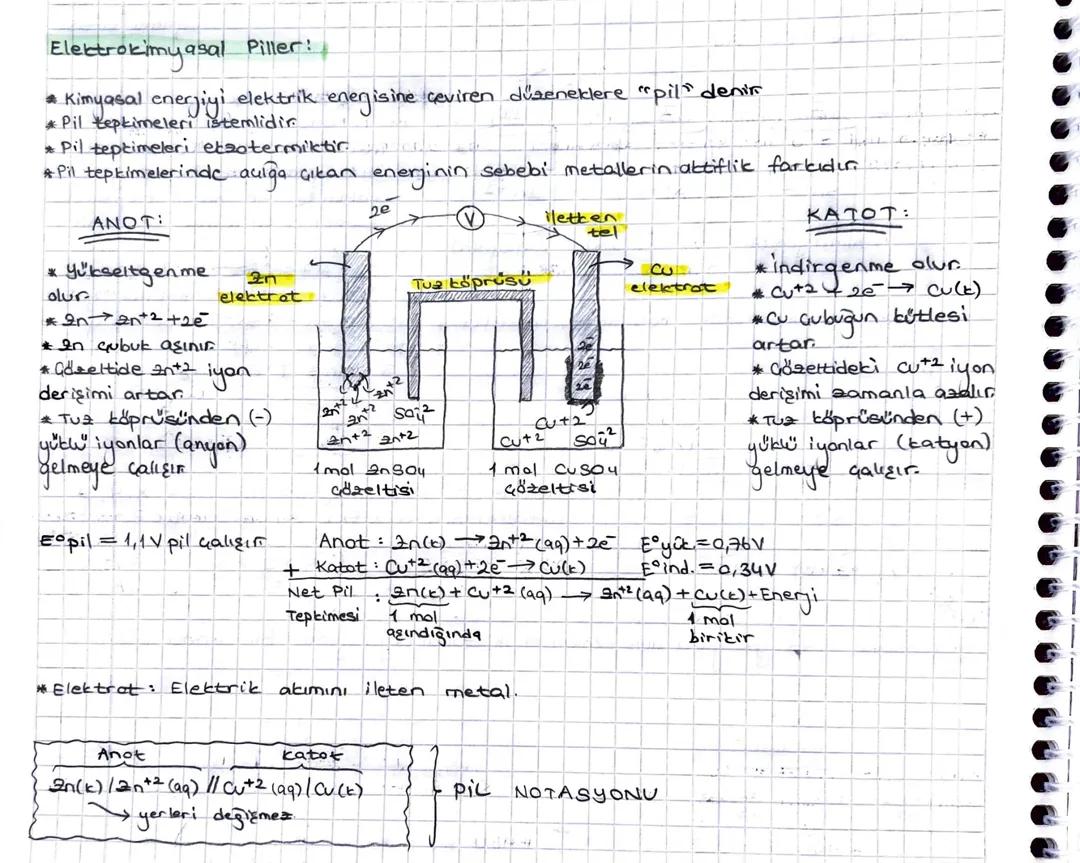 Elektrokimyasal Piller:
* Kimyasal enerjiyi elektrik enerjisine çeviren düzeneklere "pil" denir
* Pil tepkimeleri istemlidir.
* Pil tepkimeleri ekzotermiktir.
* Pil tepkimelerinde açığa çıkan enerjinin sebebi metallerin aktiflik farkıdır.
ANOT:
* Yükseltgenme
olur.
* Zn → Zn+2 + 2e⁻
* Zn çubuk aşınır.
* Çözeltide Zn+2 iyon
derişimi artar.
* Tuz köprüsünden (-)
yüklü iyonlar (anyon)
gelmeye çalışır.
2e⁻
V
iletken
tel
Zn
elektrot
Tuz köprüsü
Cu
elektrot
Zn+2
Zn+2 Zn+2 SO₄⁻²
Zn+2 Zn+2
1 mol ZnSO₄
çözeltisi
2e⁻
2e⁻
2e⁻
Cu+2
Cu+2 SO₄⁻²
1 mol CuSO₄
çözeltisi
KATOT:
* İndirgenme olur.
* Cu+2 + 2e⁻ → Cu(k)
* Cu çubuğun kütlesi
artar.
* Çözeltideki Cu+2 iyon
derişimi zamanla azalır.
* Tuz köprüsünden (+)
yüklü iyonlar (katyon)
gelmeye çalışır.
E°pil = 1,1V pil çalışır
Anot : Zn(k) → Zn+2 (aq) + 2e⁻ E°yük = 0,76V
+ Katot : Cu+2 (aq) + 2e⁻ → Cu(k) E°ind. = 0,34V
Net Pil : Zn(k) + Cu+2 (aq) → Zn+2 (aq) + Cu(k) + Enerji
Tepkimesi 1 mol 1 mol
aşındığında birikir
* Elektrot : Elektrik akımını ileten metal.
Anot Katot
Zn(k) / Zn+2 (aq) // Cu+2 (aq) / Cu(k)
→ yerleri değişmez
PİL NOTASYONU